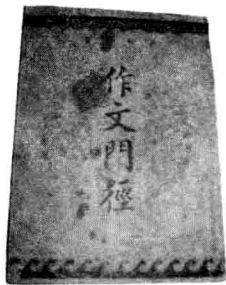 作文門徑